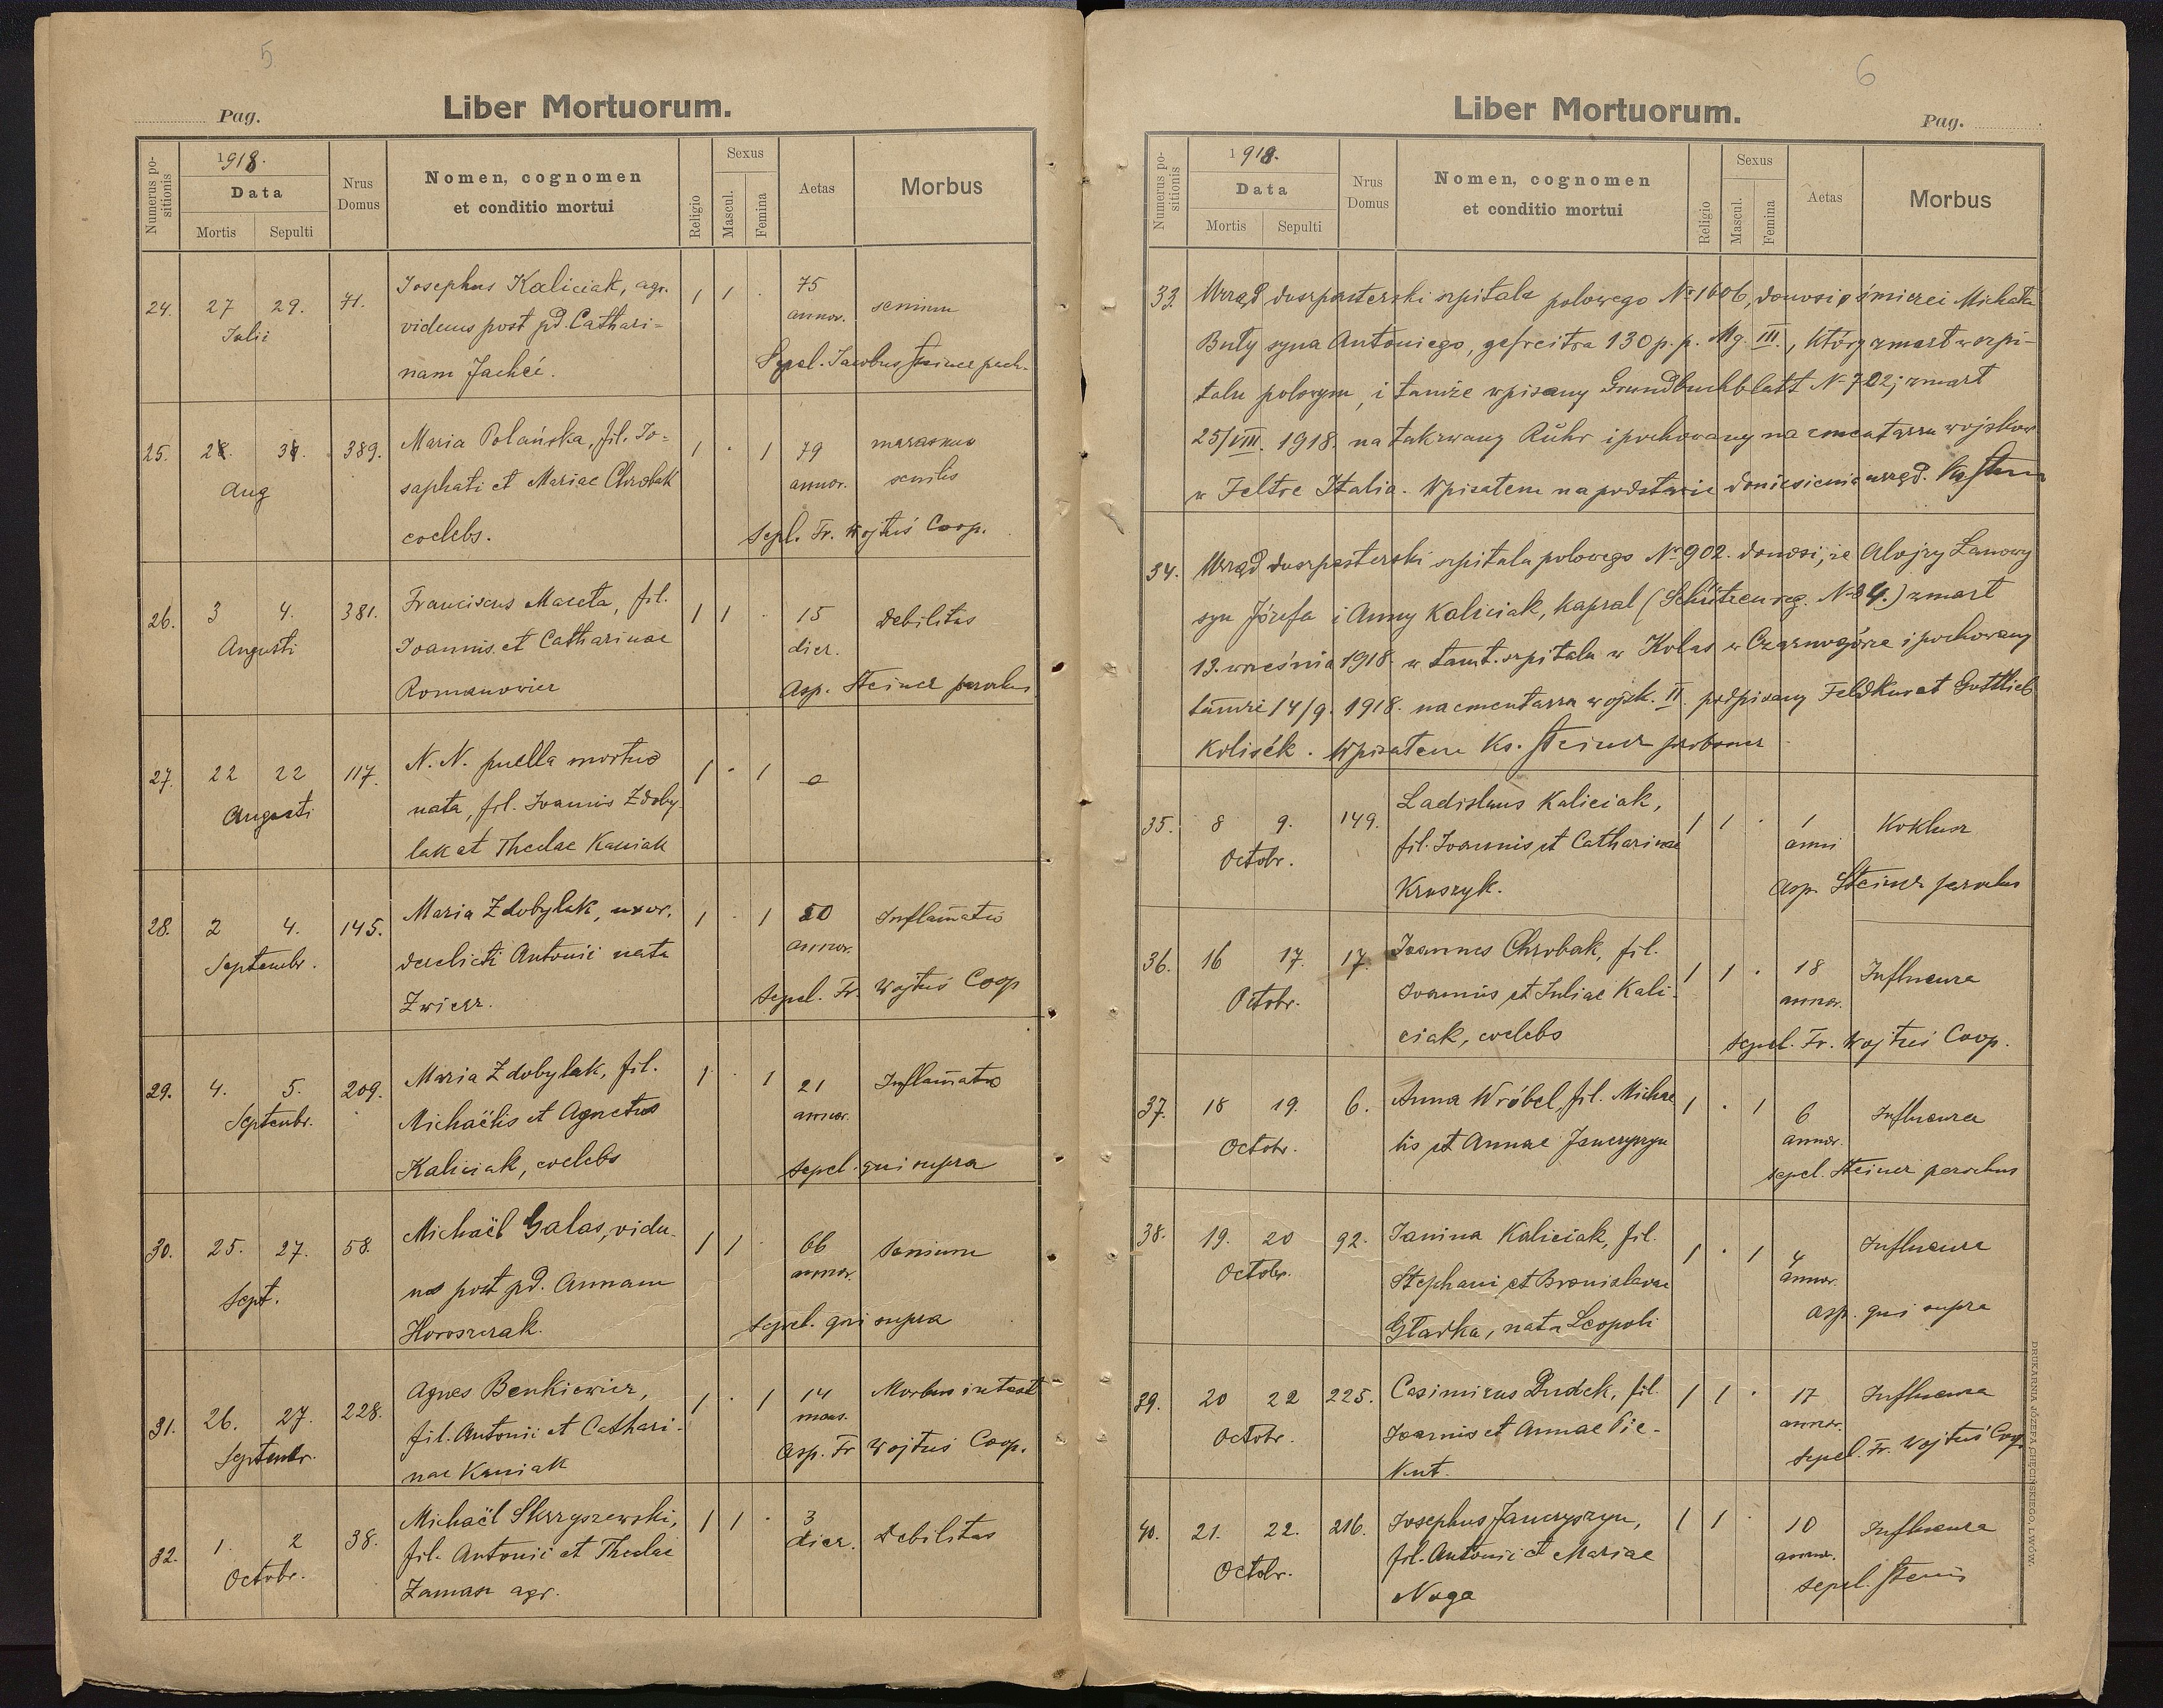 5
Pag.
Liber Mortuorum.
Numerus positionis
1918.
Data
Mortis Sepulti
Nrus Domus
Nomen, cognomen
et conditio mortui
Religio
Sexus
Mascul.
Femina
Aetas
Morbus
24. 27 29. 71. Josephus Kaliciak, agr. 1 1 · 75 senium
Julii viduus post pd. Cathari= annor.
nam Jacheć. Sepel. Jacobus Steiner paroh.
25. 28. 31. 389. Maria Polańska, fil. Jo= 1 · 1 79 marasmus
Aug saphati et Mariae Chrobak annor. senilis
coelebs. Sepl. Fr. Wojtuś Coop.
26. 3 4. 381. Franciscus Maceta, fil. 1 1 · 15 Debilitas
Augusti Joannis et Catharinae dier.
Romanowicz Asp. Steiner parochus
27. 22 22 117. N. N. puella mortuo 1 · 1 0
Augusti nata, fil. Joannis Zdoby
lak et Theclae Kaniak
28. 2 4. 145. Maria Zdobylak, uxor. 1 · 1 50 Inflamatio
Septembr. derelicti Antonii nata annor.
Zwierz. Sepel. Fr. Wojtuś Coop
29. 4. 5. 209. Maria Zdobylak, fil. 1 · 1 21 Inflamatio
Septembr. Michaëlis et Agnetus annor.
Kaliciak, coelebs sepel. qui supra
30. 25. 27. 58. Michaël Galas, vidu- 1 1 · 66 Senium
Sept. us post pd. Annam annor.
Horoszczak. Sepel. qui supra
31. 26. 27. 228. Agnes Benkiewicz, 1 · 1 14 Morbus intest
Septembr. fil. Antonii et Cathari- mens.
nae Kaniak Asp. Fr Wojtuś Coop.
32. 1. 2 38. Michaël Skrzyszewski, 1 1 · 3 Debilitas
Octobr. fil. Antonii et Theclae dier.
Zamasz agr.
6
Liber Mortuorum.
Pag.
Numerus positionis
1918.
Data
Mortis Sepulti
Nrus Domus
Nomen, cognomen
et conditio mortui
Religio
Sexus
Mascul.
Femina
Aetas
Morbus
33. Urząd duszpasterski szpitala polowego № 1606, donosi o śmierci Michała
Buły syna Antoniego, gefreitra 130 p. p. Mg. III., który zmarł w szpi-
talu polowym, i tamże wpisany Grundbuchblatt № 702; zmarł
25/VIII. 1918. na tak zwany Ruhr i pochowany na cmentarzu wojskow
w Feltre Italia. Wpisałem na podstawie doniesienia urzęd.
34. Urząd duszpasterski szpitala polowego № 902. donosi, że Alojzy Zanowy
syn Józefa i Anny Kaliciak, kapral (Schützenreg. № 34.) zmarł
13. września 1918. w tamt. szpitalu w Kolas w Czarnogórze i pochowany
tamże 14/9. 1918. na cmentarzu wojsk. II. podpisany Feldkurat Gottlieb
Kolisek. Wpisałem Ks. Steiner proboszcz
35. 8 9. 149. Ladislaus Kaliciak, 1 1 · 1 Koklusz
Octobr. fil. Joannis et Catharinae anni
Kruszyk. Asp. Steiner parochus
36. 16 17. 17. Joannes Chrobak, fil. 1 1 · 18 Influenza
Octobr. Joannis et Juliae Kali- annor.
ciak, coelebs sepel. Fr. Wojtuś Coop.
37. 18 19. 6. Anna Wróbel, fil. Michae 1 · 1 6 Influenza
Octobr. lis et Annae Janczyszyn annor.
sepel. Steiner parochus
38. 19. 20 92. Janina Kaliciak, fil. 1 · 1 4 Influenza
Octobr. Stephani et Bronislavae annor.
Gładka, nata Leopoli Asp. qui supra
39. 20 22 225. Casimirus Dudek, fil. 1 1 · 17 Influenza
Octobr. Joannis et Annae Pie- annor.
knt. sepel. Fr. Wojtuś Coop
40. 21. 22. 216. Josephus Janczyszyn, 1 1 · 10 Influenza
Octobr. fil. Antonii et Mariae annor.
Noga sepel.
DRUKARNIA JÓZEFA CHĘCIŃSKIEGO, LWÓW.